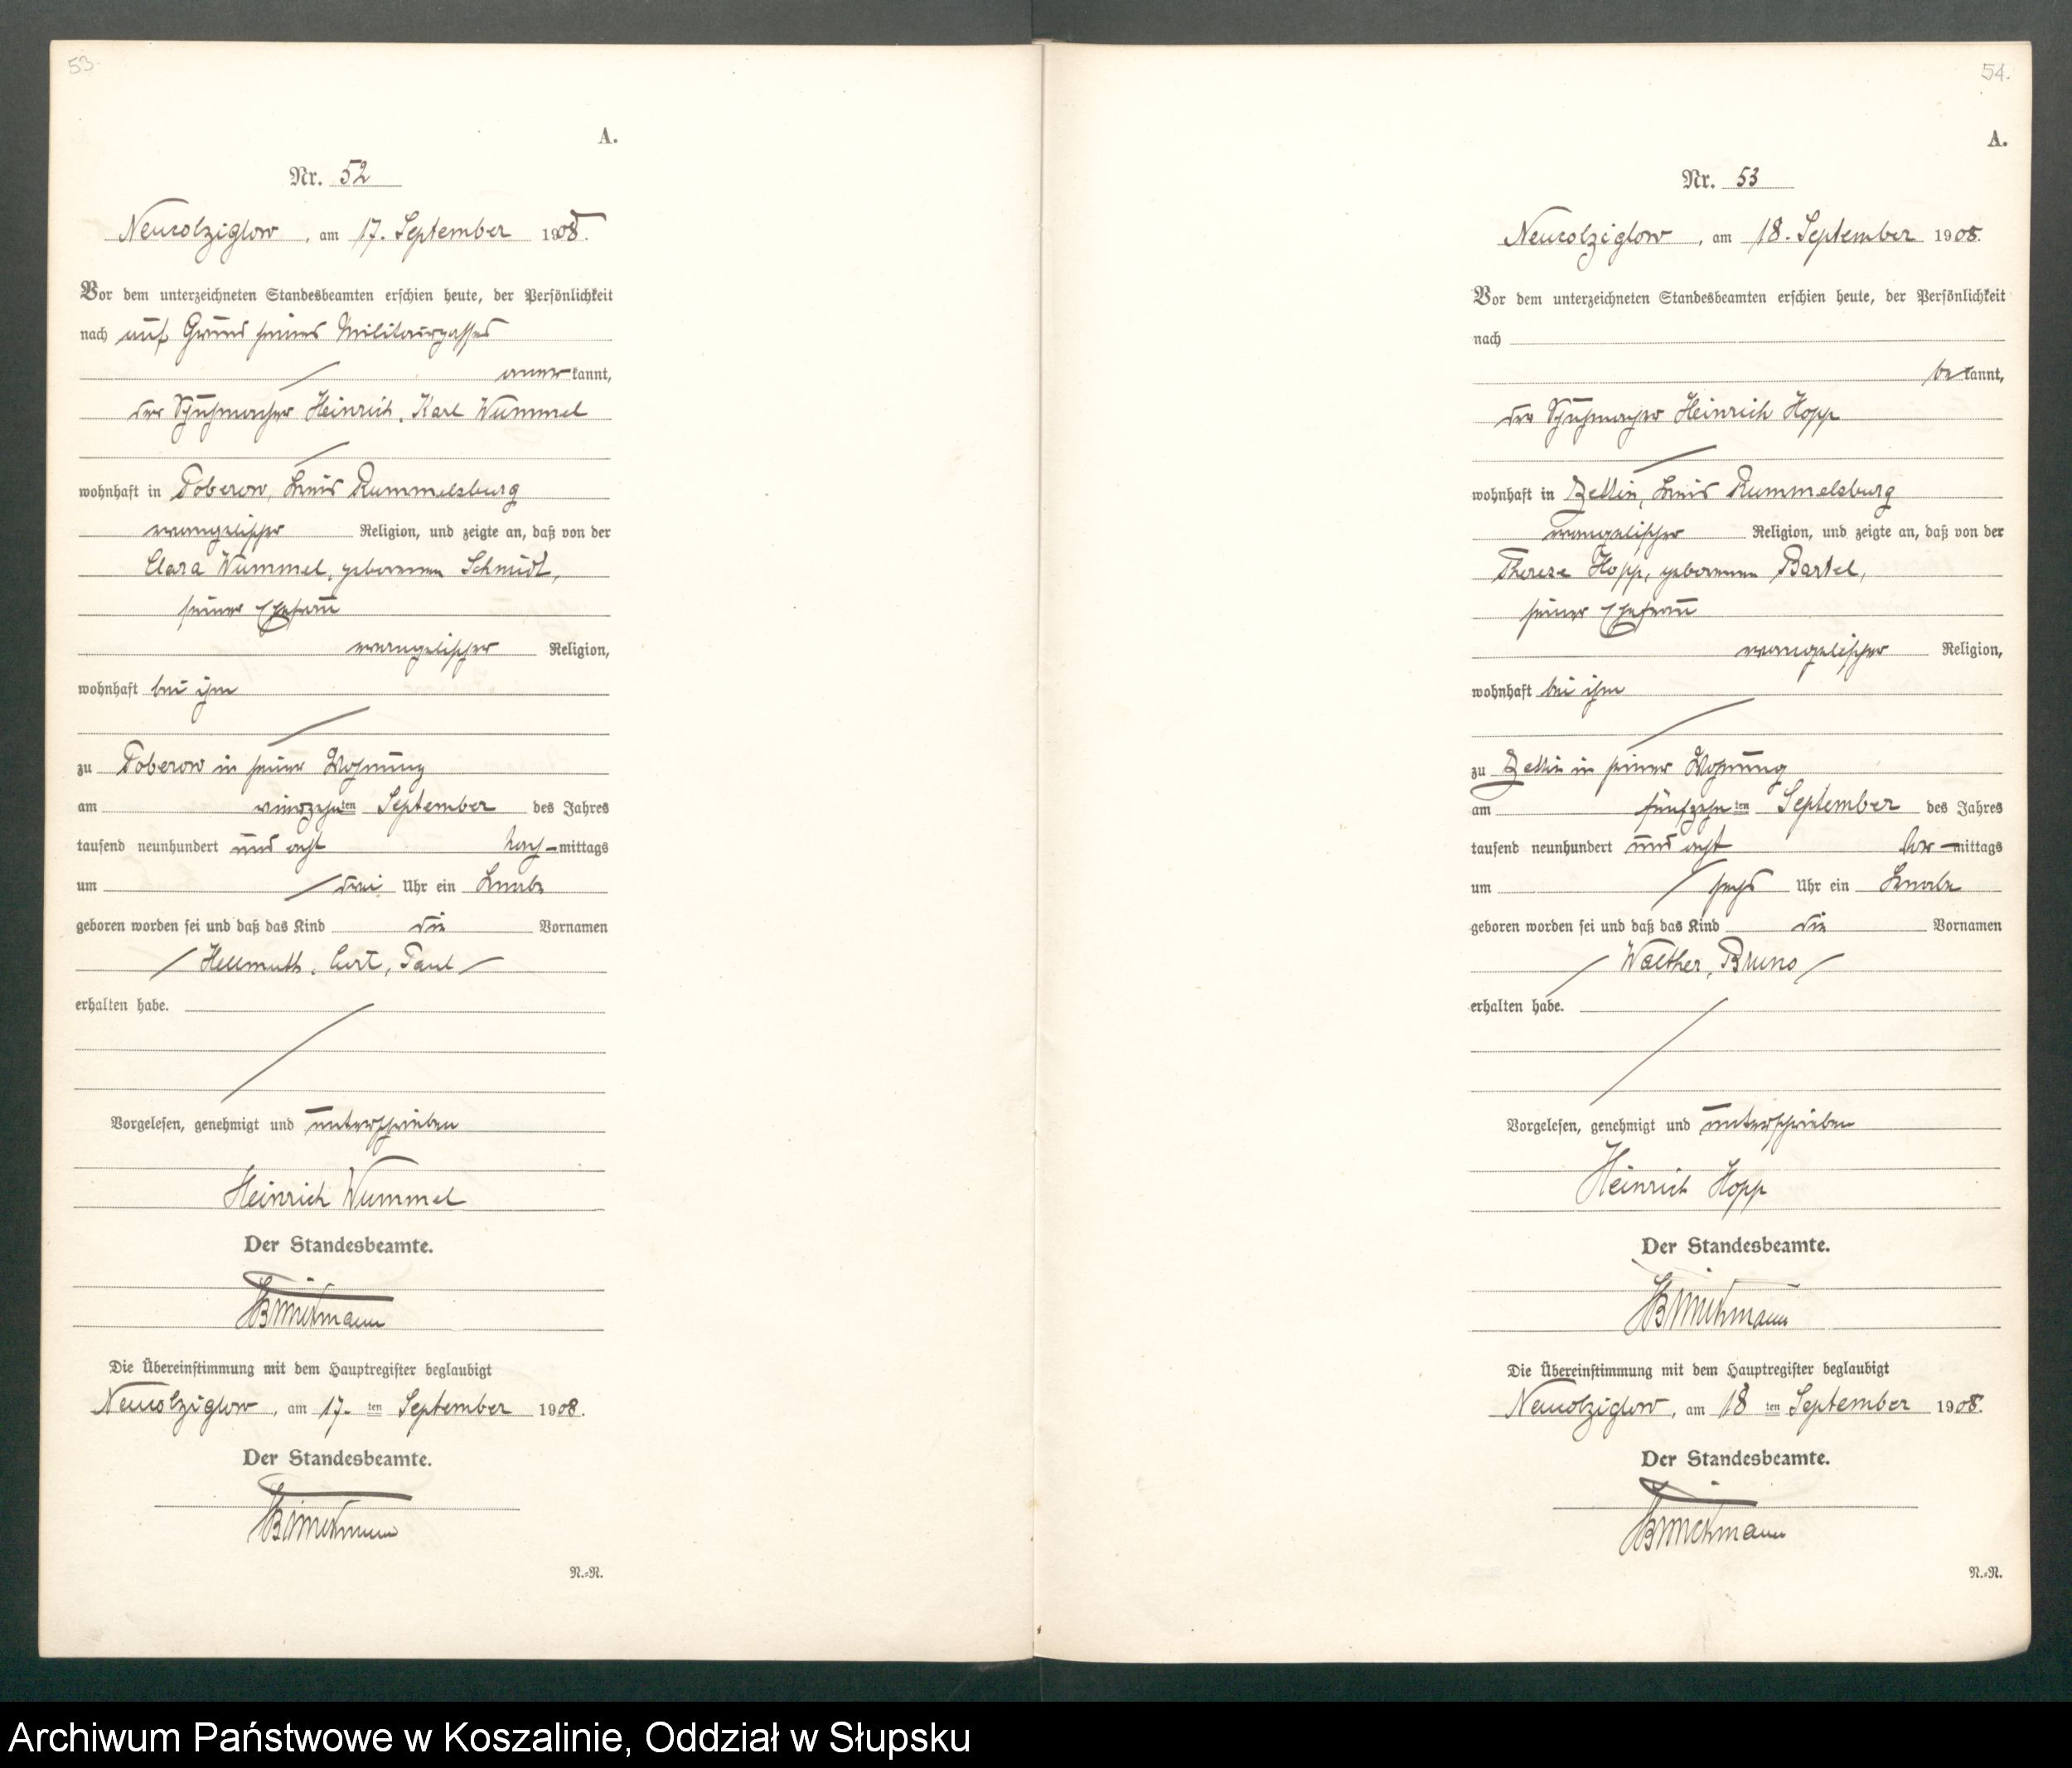 53.
A.
Nr. 52
Neukolziglow, am 17. September 1908.
Vor dem unterzeichneten Standesbeamten erschien heute, der Persönlichkeit
nach auf Grund seines Militairpasses
anerkannt,
der Schuhmacher Heinrich, Karl Wummel
wohnhaft in Poberow, Kreis Rummelsburg
evangelischer Religion, und zeigte an, daß von der
Clara Wummel, geborenen Schmidt,
seiner Ehefrau
evangelischer Religion,
wohnhaft bei ihm
zu Poberow in seiner Wohnung
am vierzehnten September des Jahres
tausend neunhundert und acht Nach-mittags
um drei Uhr ein Knabe
geboren worden sei und daß das Kind die Vornamen
Hellmuth, Curt, Paul
erhalten habe.
Vorgelesen, genehmigt und unterschrieben
Heinrich Wummel
Der Standesbeamte.
Die Übereinstimmung mit dem Hauptregister beglaubigt
Neukolziglow, am 17. ten September 1908.
Der Standesbeamte.
N.=N.
54.
A.
Nr. 53
Neukolziglow, am 18. September 1908.
Vor dem unterzeichneten Standesbeamten erschien heute, der Persönlichkeit
nach
bekannt,
der Schuhmacher Heinrich Hopp
wohnhaft in Zettin, Kreis Rummelsburg
evangelischer Religion, und zeigte an, daß von der
Therese Hopp, geborenen Bartel,
seiner Ehefrau
evangelischer Religion,
wohnhaft bei ihm
zu Zettin in seiner Wohnung
am fünfzehnten September des Jahres
tausend neunhundert und acht Vor-mittags
um sechs Uhr ein Knabe
geboren worden sei und daß das Kind die Vornamen
Walther, Bruno
erhalten habe.
Vorgelesen, genehmigt und unterschrieben
Heinrich Hopp
Der Standesbeamte.
Die Übereinstimmung mit dem Hauptregister beglaubigt
Neukolziglow, am 18 ten September 1908.
Der Standesbeamte.
N.=N.
Archiwum Państwowe w Koszalinie, Oddział w Słupsku